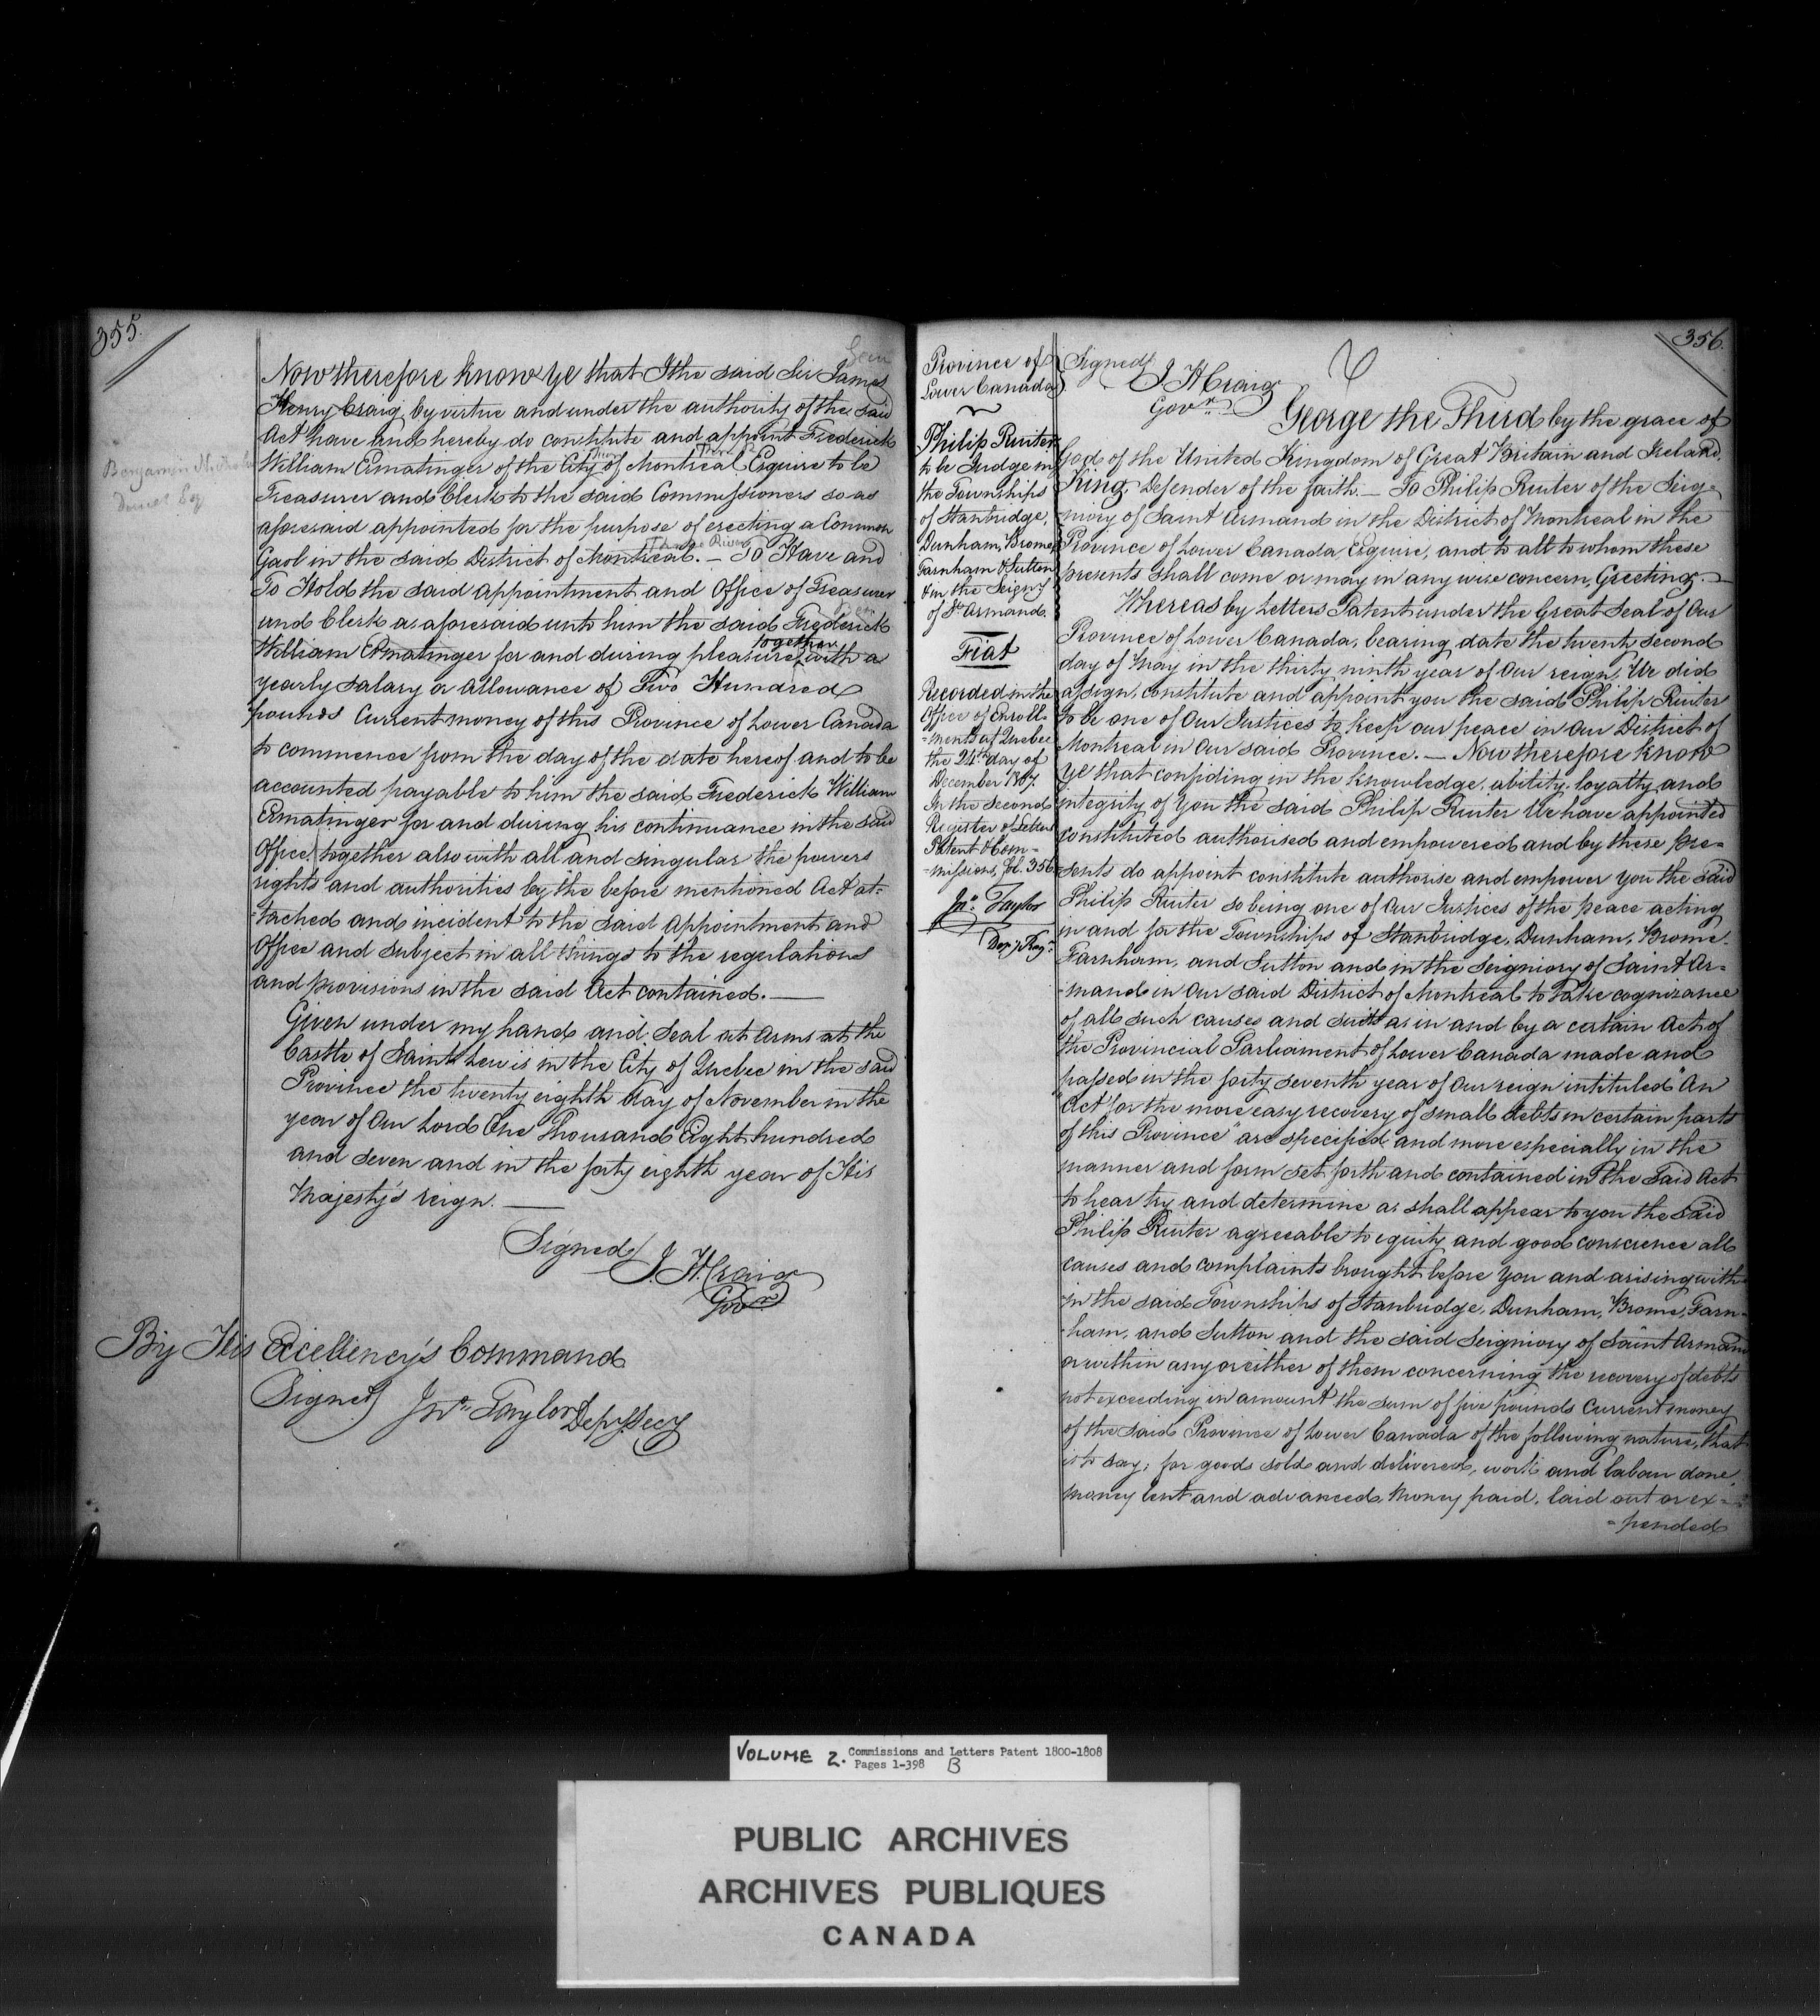 355.
Now therefore know Ye that I the said Sir James
Henry Craig by virtue and under the authority of the said
Act have and hereby do constitute and appoint Frederick
William Ermatinger of the City of Montreal Esquire to be
Treasurer and Clerk to the said Commissioners so as
aforesaid appointed for the purpose of erecting a Common
Three Rivers
Gaol in the said District of Montreal. — To Have and
To Hold the said appointment and Office of Treasurer
and Clerk as aforesaid unto him the said Frederick
together
William Ermatinger for and during pleasure, with a
yearly salary or allowance of Two Hundred
pounds Current money of this Province of Lower Canada
to commence from the day of the date hereof and to be
accounted payable to him the said Frederick William
Ermatinger for and during his continuance in the said
Office, together also with all and singular the powers
rights and authorities by the before mentioned Act at-
-tached and incident to the said appointment and
Office and subject in all things to the regulations
and provisions in the said Act contained. —
Given under my hand and Seal at Arms at the
Castle of Saint Lewis in the City of Quebec in the said
Province the twenty eighth day of November in the
year of Our Lord One Thousand Eight hundred
and seven and in the forty eighth year of His
Majesty's reign. —
Signed J. H. Craig
Govr
By His Excellency's Command
Signed Jno. Taylor Depy. Secy
Benjamin
Esq
356.
Province of
Lower Canada
Philip Ruiter
to be Judge in
the Townships
of Stanbridge,
Dunham, Brome,
Farnham & Sutton
& in the Seigny
of St Armand.
Fiat
Recorded in the
Office of Enroll-
-ments at Quebec
the 24th day of
December 1807.
In the Second
Register of Letters
Patent & Com-
-missions, fol. 356
Jno. Taylor
Depy Regr.
Signed J H Craig
Govr.
George the Third by the grace of
God of the United Kingdom of Great Britain and Ireland,
King, Defender of the faith. — To Philip Ruiter of the Seig-
niory of Saint Armand in the District of Montreal in the
Province of Lower Canada Esquire, and to all to whom these
presents shall come or may in any wise concern, Greeting. —
Whereas by Letters Patent under the Great Seal of Our
Province of Lower Canada, bearing date the twenty second
day of May in the thirty ninth year of Our reign, We did
assign, constitute and appoint you the said Philip Ruiter
to be one of Our Justices to keep our peace in Our District of
Montreal in Our said Province. — Now therefore know
Ye that confiding in the knowledge, ability, loyalty and
integrity of you the said Philip Ruiter We have appointed
constituted authorised and empowered and by these pre-
sents do appoint constitute authorise and empower you the said
Philip Ruiter so being one of Our Justices of the peace acting
in and for the Townships of Stanbridge, Dunham, Brome,
Farnham, and Sutton and in the Seigniory of Saint Ar-
-mand in Our said District of Montreal to take cognizance
of all such causes and suits as in and by a certain Act of
the Provincial Parliament of Lower Canada made and
passed in the forty seventh year of Our reign intituled "An
"Act for the more easy recovery of small debts in certain parts
of this Province" are specified and more especially in the
manner and form set forth and contained in the said Act
to hear try and determine as shall appear to you the said
Philip Ruiter agreeable to equity and good conscience all
causes and complaints brought before you and arising with-
in the said Townships of Stanbridge, Dunham, Brome, Farn-
-ham, and Sutton and the said Seigniory of Saint Armand
or within any or either of them concerning the recovery of debts
not exceeding in amount the sum of five pounds Current money
of the said Province of Lower Canada of the following nature, that
is to say, for goods sold and delivered, work and labour done,
money lent and advanced, Money paid, laid out or ex-
-pended
VOLUME 2. Commissions and Letters Patent 1800-1808
Pages 1-398 B
PUBLIC ARCHIVES
ARCHIVES PUBLIQUES
CANADA